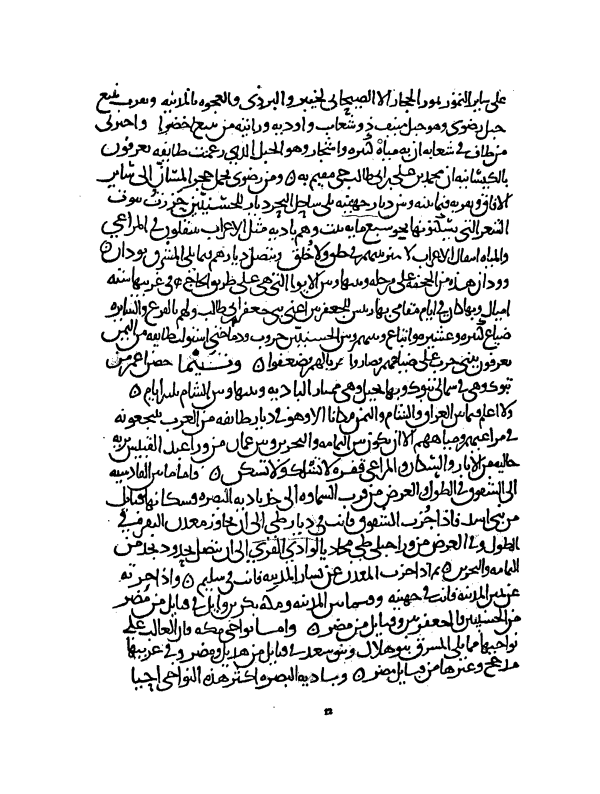 على ساير التمور بدور الحجاز الا الصيحانى لخيبر والبردى والعجوه بالمدينه وبقرب ينبع
جبل رضوى وهو جبل منيف ذو شعاب واوديه ورايته من ينبع اخضرا واخبرنى
من طاف فى شعابه ان به مياهًا كثيره واشجار وهو الجبل الذى زعمت طايفه يعرفون
بالكيسانيه ان محمد بن على بن ابى طالب حى مقيم به ٥ ومن رضوى يحمل حجر المسان الى ساير
الافاق وبقربه فيما بينه وبين ديار جهينه بلى وساحل البحر ديار للحسنيين حزرت بيوت
الشعر التى يسكنونها نحو سبع مايه بيت وهم باديه مثل الاعراب ينتقلون فى المراعى
والمياه انتقال الاعراب لا تميز بينهم فى خلق ولا خُلق وتتصل ديارهم مما يلى المشرق بودان ٥
وودان هذه من الجحفه على مرحله وبينها وبين الابوا التى هى على طريق الحاج فى غربيها سته
اميال وبها كان فى ايام مقامى بها رئيس للجعفريين اعنى بنى جعفر بن ابى طالب ولهم بالفرع والسايره
ضياع كثيره وعشيره واتباع وبينهم وبين الحسنيين حروب ودما حتى استولت طايفه من اليمن
يعرفون ببنى حرب على ضياعهم وصاروا حربا لهم وضعفوا ٥ وتيما حصن اعمر من
تبوك وهى فى شمالى تبوك وبها نخيل وهى ممتار الباديه وبينها وبين الشام ثلثه ايام ٥
ولا اعلم فيما بين العراق والشام واليمن مكانا الا وهو فى ديار طايفه من العرب ينتجعونه
فى مراعيهم ومياههم الا ان يكون بين اليمامه والبحرين وبين عمان من ورا عبد القيس بريه
خاليه من الابار والسكان والمراعى قفره لا تسلك ولا تسكن ٥ واما ما بين القادسيه
الى الشقوق فى الطول وفى العرض من قرب السماوه الى حد باديه البصره فسكانها قبايل
من بنى اسد فاذا جُزت الشقوق فانت فى ديار طى الى ان تجاوز معدن النقره فى
الطول وفى العرض من ورا جبلى طى محاذيا لوادى القرى الى ان تتصل بحدود نجد من
اليمامه والبحرين ٥ ثم اذا جزت المعدن عن يسار المدينه فانت فى سليم ٥ واذا جزته
عن يمين المدينه فانت فى جهينه وفيما بين المدينه ومكه بكر بن وايل فى قبايل من مضر
من الحسنيين والجعفريين وقبايل من مضر ٥ واما نواحى مكه فان الغالب على
نواحيها مما يلى المشرق بنو هلال وبنو سعد فى قبايل من هذيل ومضر وفى غربيها
مدحج وغيرها من قبايل مضر ٥ وباديه البصره اكثر هذه النواحى احيا